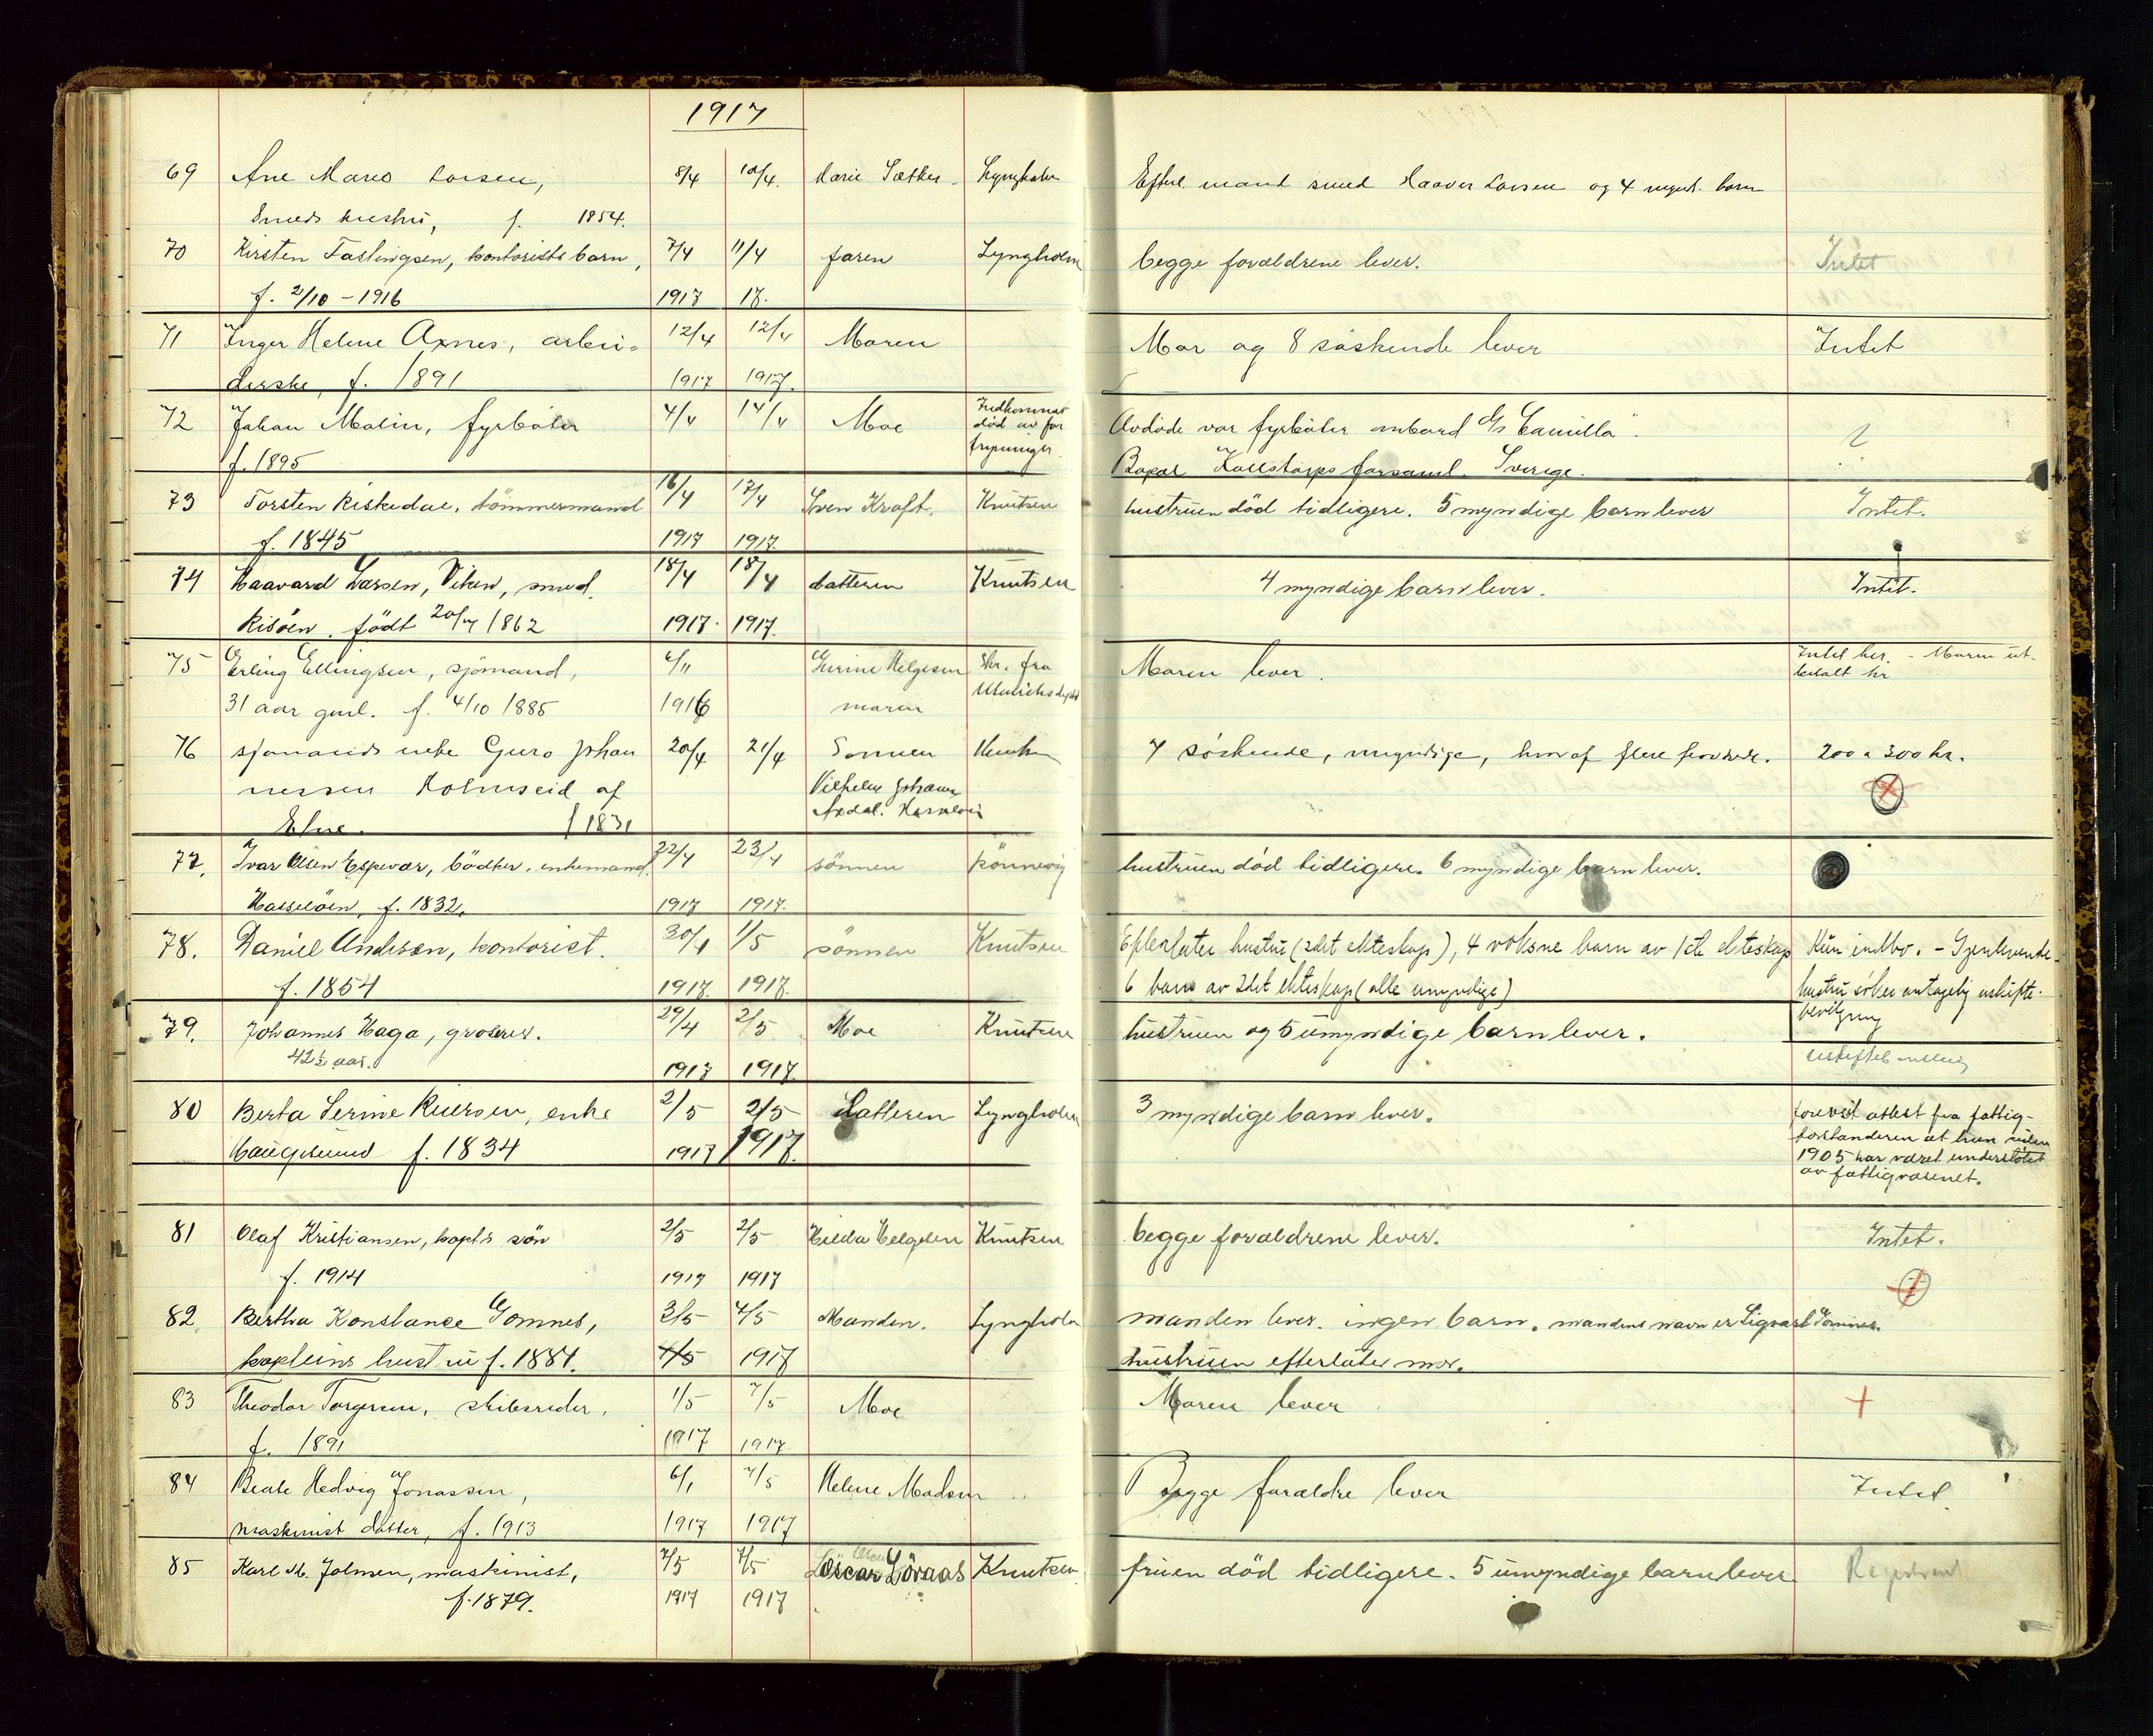 1917
69 Ane Larsen, 8/4 10/4. Marie Sæther Lyngholm Efterl. mand smed Haaver Larsen og 4 barn
Smeds hustru, f. 1854.
70 Kirsten Fastingsen, kontorists barn, 7/4 11/4 faren Lyngholm begge forældrene lever. Intet
f. 2/10 - 1916 1917 17.
71 Inger Helene Axnes, arbei= 12/4 12/4 Moren Mor og 8 søskende lever Intet
derske, f. 1891 1917 1917.
72 Johan Malin, fyrbøter 4/4 14/4 Moe Indkommet død av for Avdøde var fyrbøter ombord "Camilla".
f. 1895 Bopæl forsaml. Sverige.
73 Torsten Riskedal, tömmermand 16/4 17/4 Sven Kraft. Knutsen hustruen død tidligere. 5 myndige barn lever Intet.
f. 1845 1917 1917.
74 Haavard Larsen, Viken, smed. 18/4 18/4 datteren Knutsen 4 myndige barn lever. Intet.
Risöen, født 20/4 1862 1917. 1917.
75 Erling Ellingsen, sjömand, 6/11 Gurine Helgesen Skr. fra Moren lever. Intet her. - Moren ut-
betalt kr
31 aar gml. f. 4/10 1885 1916 moren
76 sjömands enke Guro Johan 20/4 21/4 Sønnen 7 søskende, myndige, hvoraf flere 200 a 300 kr.
nessen Holmseid af Vilhelm Johannes
Etne. f 1831 Axdal.
77. Ivar Olsen Espevær, bödker, enkemand. 22/4 23/4 sönnen hustruen död tidligere. 6 myndige barn lever.
Hasselöen, f. 1832, 1917 1917.
78. Daniel Andersen, kontorist. 30/4 1/5 sönnen Knutsen Efterlater hustru (2det ekteskap), 4 voksne barn av 1ste ekteskap Kun indbo. - Gjenlevende
f. 1854 1917. 1917. 6 barn av 2det ekteskap (alle umyndige) hustru søker antagelig uskifte-
bevilgning
79. Johannes Haga, grosserer. 29/4 2/5 Moe Knutsen hustruen og 5 umyndige barn lever.
42½ aar. 1917 1917.
80 Berta Serine Iversen, enke 2/5 2/5 datteren Lyngholm 3 myndige barn lever. forevist attest fra fattig-
forstanderen at hun siden
Haugesund f. 1834 1917 1917. 1905 har været understøttet
av fattigvæsenet.
81 Olaf Kristiansen, kapts sön 2/5 2/5 Hilda Helgesen Knutsen begge forældrene lever. Intet.
f. 1914 1917 1917
82 Bertha Konstance Gomnes, 3/5 4/5 Manden. Lyngholm manden lever. ingen barn. mandens navn er Sigvart Gomnes.
kapteins hustru f. 1881. 4/5 1917 hustruen efterlater mor.
83 Theodor Torgersen, skibsreder, 1/5 7/5 Moe Moren lever
f. 1891 1917 1917
84 Beate Hedvig Jonassen, 6/1 7/5 Helene Madsen Begge forældre lever Intet.
maskinist datter, f. 1913 1917 1917
85 Karl M. Jolmen, maskinist, 7/5 7/5 Oscar Löraas Knutsen fruen död tidligere. 5 umyndige barn lever
f. 1879. 1917 1917